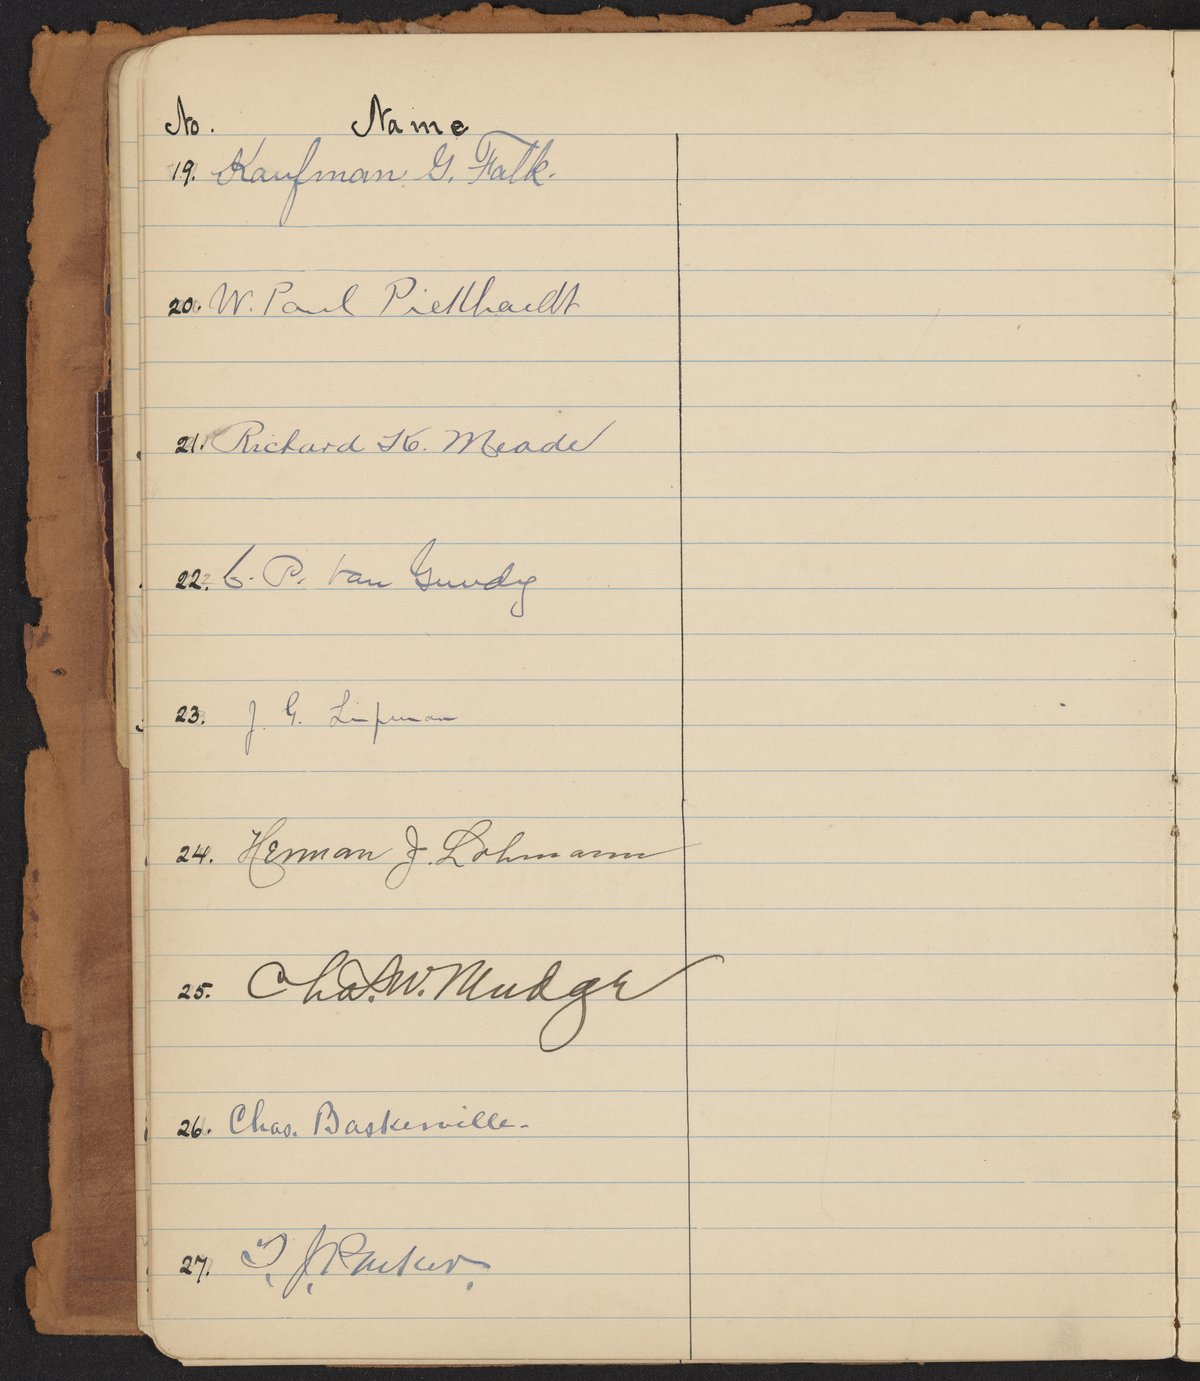 No. Name
19. Kaufman G. Falk.
20. W. Paul Pickhardt
21. Richard K. Meade
22. C. P. Van Gundy
23. J. G. Lipman
24. Herman J. Lohmann
25. Chas. W. Mudge
26. Chas. Baskerville.
27. T. J. Parker.